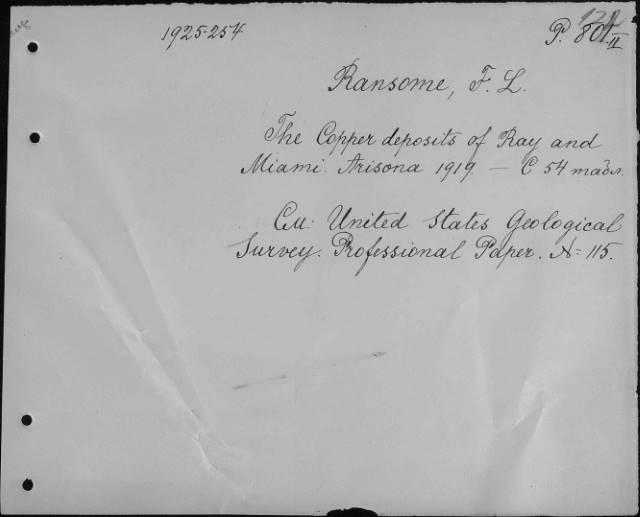 1925-254
P. 801/II
Ransome, F. L.
The Copper deposits of Ray and
Miami. Arisona 1919 — С 54 табл.
См. United States Geological
Survey. Professional Paper. N= 115.